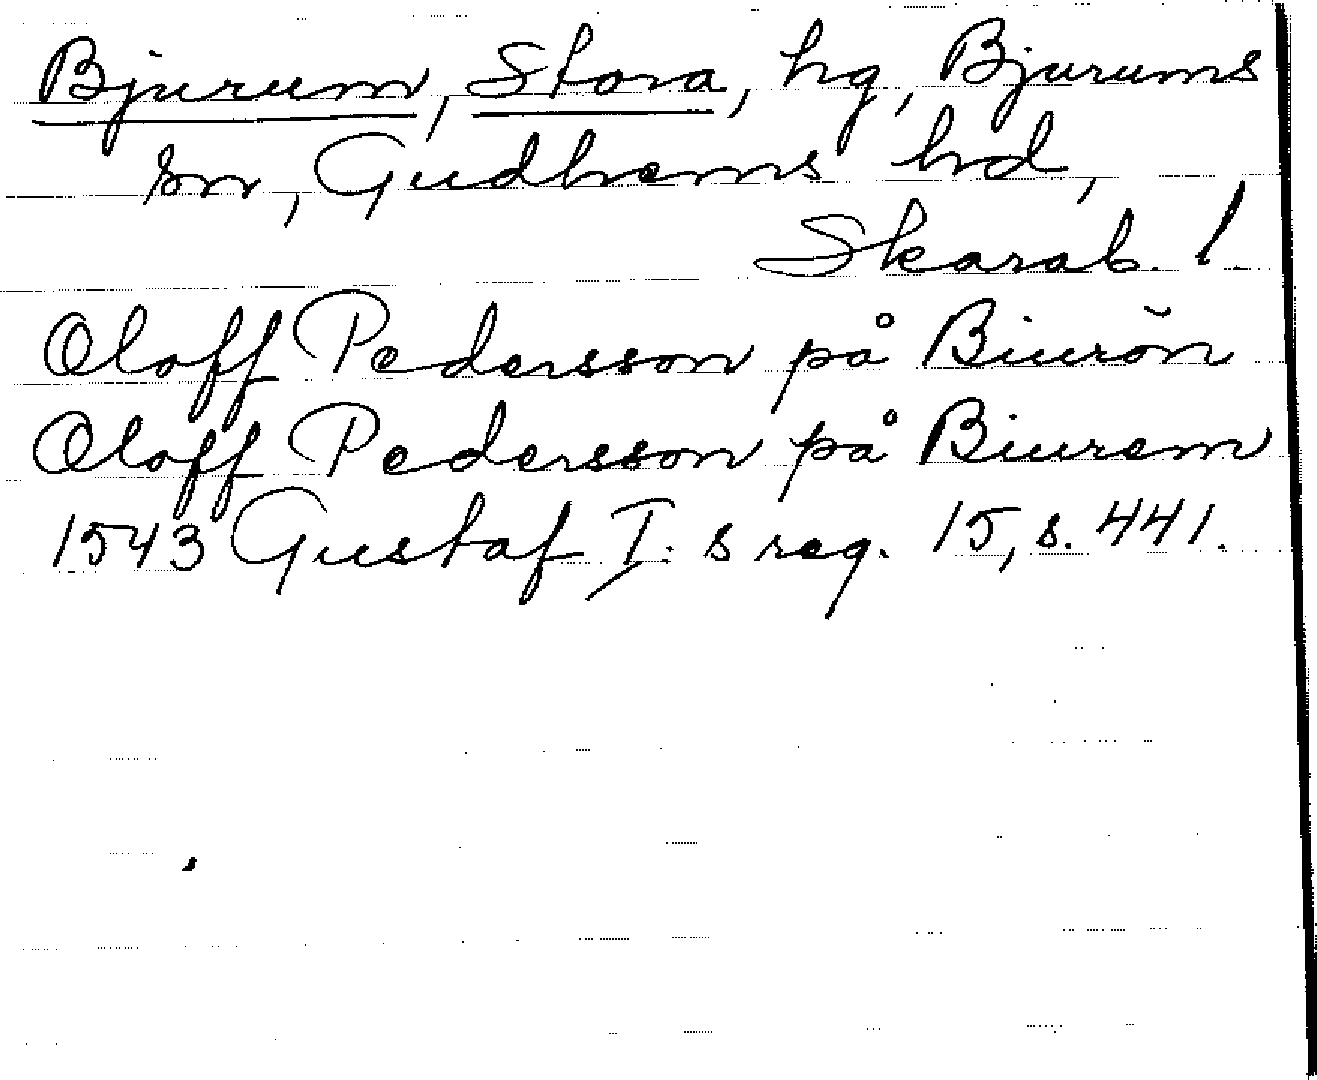 Bjurum, Stora, hg, Bjurums
sn, Gudhems hd,
Skarab. l.
Oloff Pedersson på Biurŏn
Oloff Pedersson på Biurem
1543 Gustaf I:s reg. 15, s. 441.